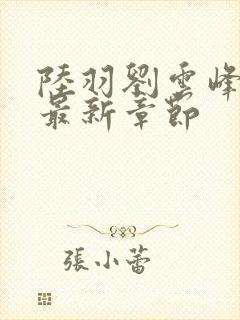 陸羽劉雲峰
最新章節
張小蕾